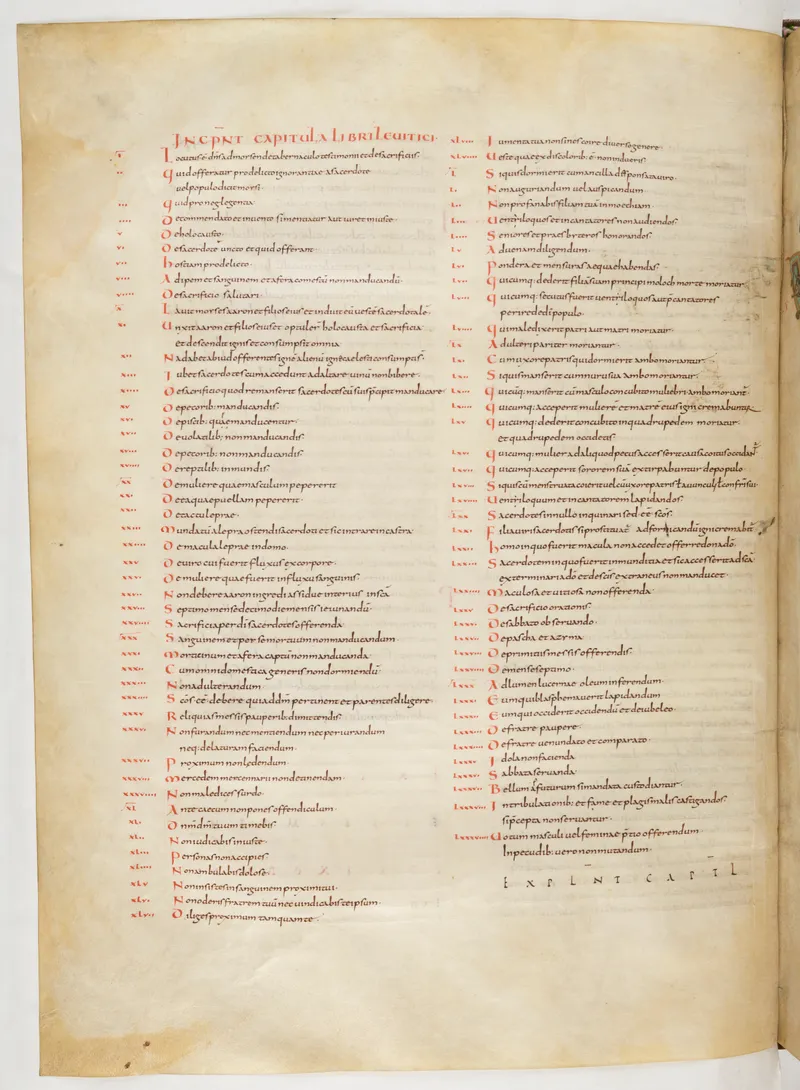 INCPNT CAPITULA LIBRI LEUITICI
I Locutus e dns ad morsen de tabernaculo testimonii et de sacrificiis
II Quid offeratur pro delicto ignorantiae a sacerdote
uel populo dicit morsi
III Quid pro neglegentia
IIII De commendato et inuento si mentiatur aut iuret iniuste
V De holocausto
VI De sacerdote uncto et quid offerant
VII Hostiam pro delicto
VIII Adipem et sanguinem et a fera comestu non manducandu
VIIII De sacrificio salutari
X Lauit morses aaron et filios eius et induit eu ueste sacerdotale
XI Unxit aaron et filios eius et optuler holocausta et sacrificia
et descendit ignis et consumpsit omnia
XII Nadab et abiud offerentes igne alienu igne caelesti consumpti s
XIII Iubet sacerdotes cum accedunt ad altare uinu non bibere
XIIII De sacrificio quod remanserit sacerdotes
XV De pecorib: manducandis
XVI De piscib: quae manducentur
XVII De uolatilib: non manducandis
XVIII De pecorib: non manducandis
XVIIII De reptilib: inmundis
XX De muliere quae masculum pepererit
XXI De ea quae puellam pepererit
XXII De tactu leprae
XXIII Mundatu a lepra ostendi sacerdoti et sic intrare in castra
XXIIII De macula leprae in domo
XXV De uiro cui fuerit fluxus ex corpore
XXVI De muliere quae fuerit in fluxu sanguinis
XXVII Non debere aaron ingredi assidue interius in sca
XXVIII Septimo mense decimo die mensis ieiunandu
XXVIIII Sacrificia per di sacerdotes offerenda
XXX Sanguinem et per se mortuum non manducandum
XXXI Morticinum et a fera captu non manducanda
XXXII Cum omni domestica generis non dormiendu
XXXIII Non adulterandum
XXXIIII Scos ee debere qui ad dm pertinent et parentes diligere
XXXV Reliquias messis pauperib: dimittendis
XXXVI Non furandum nec mentiendum nec periurandum
neq: delaturam faciendum
XXXVII Proximum non ledendum
XXXVIII Mercedem mercennarii non detinendam
XXXVIIII Non maledices surdo
XL Ante caecum non pones offendiculum
XLI Dnm dm tuum timebis
XLII Non iudicabis iniuste
XLIII Personas non accipies
XLIIII Non ambulabis dolose
XLV Non insistes in sanguinem proximi tui
XLVI Non oderis fratrem tuu nec uindicabis te ipsum
XLVII Diliges proximum tamquam te
XLVIII Iumenta tua non sines coire diuerso genere
XLVIIII Ueste quae ex discolorib: e non indueris
L Si quis dormierit cum ancilla desponsata uiro
LI Non auguriandum uel auspicandum
LII Non profanabis filiam tua in moechiam
LIII Uentriloquos et incantatores non audiendos
LIIII Seniores et praesbyteros honorandos
LV Aduenam diligendum
LVI Pondera et mensuras aequa habendas
LVII Quicumq: dederit filia sua principi moloch morte moriatur
LVIII Quicumq: secutus fuerit uentriloquos aut pcantatores
perire de di populo
LVIIII Qui maledixerit patri aut matri moriatur
LX Adulteri pariter moriantur
LXI Cum uxore patris qui dormierit ambo moriantur
LXII Si quis manserit cum nurus sua ambo moriantur
LXIII Quicuq: manserit cu masculo concubitu muliebri ambo moriant
LXIIII Quicumq: acceperit muliere et matre eius igni cremabuntur
LXV Quicumq: dederit concubitu in quadrupedem moriatur
et quadrupedem occidetis
LXVI Quicumq: mulier ad aliquod pecus accesserit causa coitus occidant
LXVII Quicumq: acceperit sororem sua extirpabuntur de populo
LXVIII Si quis cu menstruata coierit uel cu uxore patris
LXVIIII Uentriloquum et incantatorem lapidandos
LXX Sacerdotes in nullo inquinari sed ee scos
LXXI Filia uiri sacerdotis si prostituta e igni cremabit
LXXII Homo in quo fuerit macula non accedet offerre dona do
LXXIII Sacerdotem in quo fuerit inmunditia et sic accesserit ad sca
exterminari a do et de scis extraneus non manducet
LXXIIII Maculosa et uitiosa non offerenda
LXXV De sacrificio orationis
LXXVI De sabbato obseruando
LXXVII De pascha et azima
LXXVIII De primitiis messis offerendis
LXXVIIII De mense septimo
LXXX Ad lumen lucernae oleum inferendum
LXXXI Eum qui blasphemauerit lapidandum
LXXXII Eum qui occiderit occidendu et de iubeleo
LXXXIII De fratre paupere
LXXXIIII De fratre uenundato et comparato
LXXXV Idola non facienda
LXXXVI Sabbata seruanda
LXXXVII Bellum afuturum si mandata custodiantur
LXXXVIII In tribulationib: et fame et plagis malis castigandos
si pcepta non seruantur
LXXXVIIII Uotum masculi uel feminae ptio offerendum
In pecudib: uero non mutandum
EXPLNT CAPITL